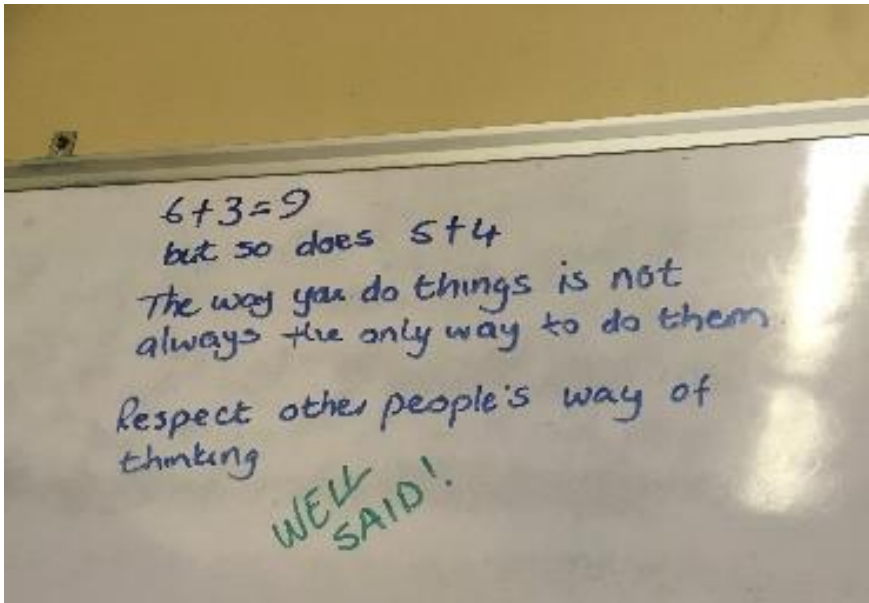 6+3=9
but so does 5+4
The way you do things is not
always the only way to do them.
Respect other people's way of
thinking
WELL
SAID!